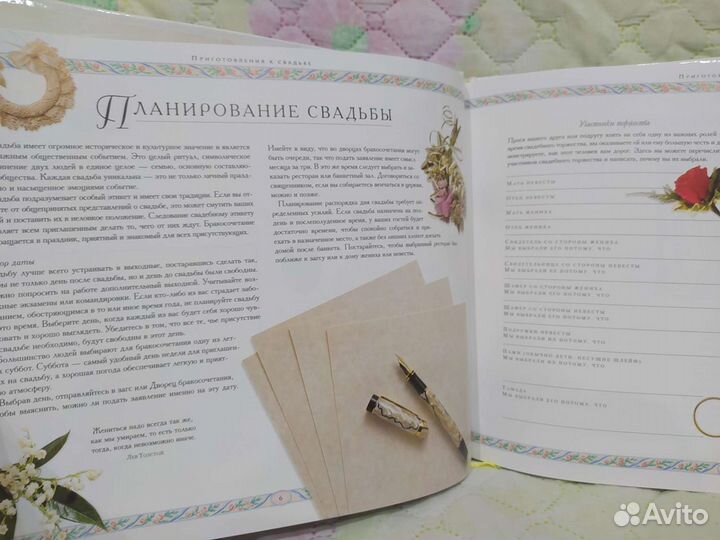 Приготовления к свадьбе
Планирование свадьбы
имеет огромное историческое и культурное значение и является
общественным событием. Это целый ритуал, символическое
двух людей в единое целое — семью, основную составляю-
общества. Каждая свадьба уникальна — это не только личный празд-
но и насыщенное эмоциями событие.
подразумевает особый этикет и имеет свои традиции. Если вы от-
от общепринятых представлений о свадьбе, это может смутить ваших
и поставить их в неловкое положение. Следование свадебному этикету
всем приглашенным делать то, чего от них ждут. Бракосочетание
в праздник, приятный и знакомый для всех присутствующих.
даты
лучше всего устраивать в выходные, постаравшись сделать так,
не только день после свадьбы, но и день до свадьбы были свободны.
попросить на работе дополнительный выходной. Учитывайте воз-
экзамены или командировки. Если кто-либо из вас страдает забо-
обостряющимся в то или иное время года, не планируйте свадьбу
время. Выберите день, когда каждый из вас будет себя хорошо чув-
и хорошо выглядеть. Убедитесь в том, что все те, чье присутствие
свадьбе необходимо, будут свободны в этот день.
Большинство людей выбирают для бракосочетания одну из лет-
суббот. Суббота — самый удобный день недели для приглашен-
на свадьбу, а хорошая погода обеспечивает легкую и прият-
атмосферу.
Выбрав день, отправляйтесь в загс или Дворец бракосочетания,
чтобы выяснить, можно ли подать заявление именно на эту дату.
Жениться надо всегда так же,
как мы умираем, то есть только
тогда, когда невозможно иначе.
Лев Толстой
Имейте в виду, что во дворцах бракосочетания могут
быть очереди, так что подать заявление имеет смысл
месяца за три. В это же время следует выбрать и за-
казать ресторан или банкетный зал. Договориться со
священником, если вы собираетесь венчаться в церкви,
можно и позже.
Планирование распорядка дня свадьбы требует оп-
ределенных усилий. Если свадьба назначена на пол-
день и послеполуденное время, у ваших гостей будет
достаточно времени, чтобы спокойно собраться и при-
ехать в назначенное место, а также без лишних хлопот доехать
домой после банкета. Постарайтесь, чтобы выбранный ресторан был
поближе к загсу или к дому жениха или невесты.
6
Приготов
Участники торжества
Прося вашего друга или подругу взять на себя одну из важных ролей
время свадебного торжества, вы оказываете ей или ему большую честь и
демонстрируете, как этот человек вам дорог. Здесь вы можете перечислить
участников свадебного торжества и написать, почему вы их выбрали.
Мать невесты
Отец невесты
Мать жениха
Отец жениха
Свидетель со стороны жениха
Мы выбрали его потому, что
Свидетельница со стороны невесты
Мы выбрали ее потому, что
Шафер со стороны жениха
Мы выбрали его потому, что
Шафер со стороны невесты
Мы выбрали его потому, что
Подружки невесты
Мы выбрали их потому, что
Пажи (обычно дети, несущие шлейф)
Мы выбрали их потому, что
Тамада
Мы выбрали его потому, что
Avito